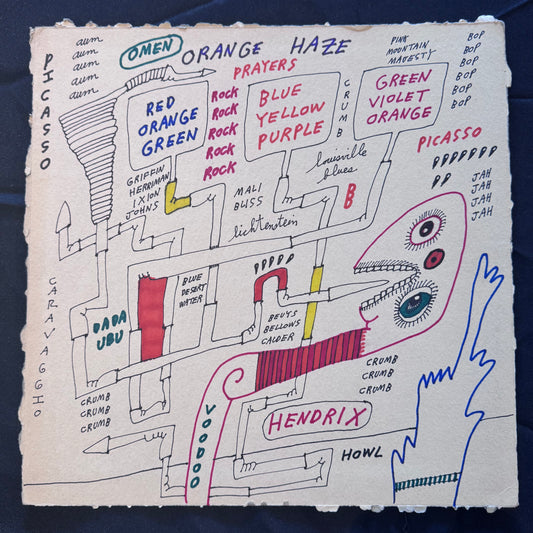 PICASSO
aum
aum
aum
aum
aum
OMEN
ORANGE HAZE
PRAYERS
PINK
MOUNTAIN
MAJESTY
BOP
BOP
BOP
BOP
BOP
BOP
RED
ORANGE
GREEN
ROCK
ROCK
ROCK
ROCK
ROCK
BLUE
YELLOW
PURPLE
CRUMB
GREEN
VIOLET
ORANGE
PICASSO
PPPPPPP
PP
JAH
JAH
JAH
JAH
GRIFFIN
HERRIMAN
IXION
JOHNS
MALI
BLISS
lichtenstein
louisville
blues
B
CARAVAGGIO
DADA
UBU
BLUE
DESERT
WATER
PPPPP
BEUYS
BELLOWS
CALDER
CRUMB
CRUMB
CRUMB
CRUMB
CRUMB
CRUMB
VOODOO
HENDRIX
HOWL